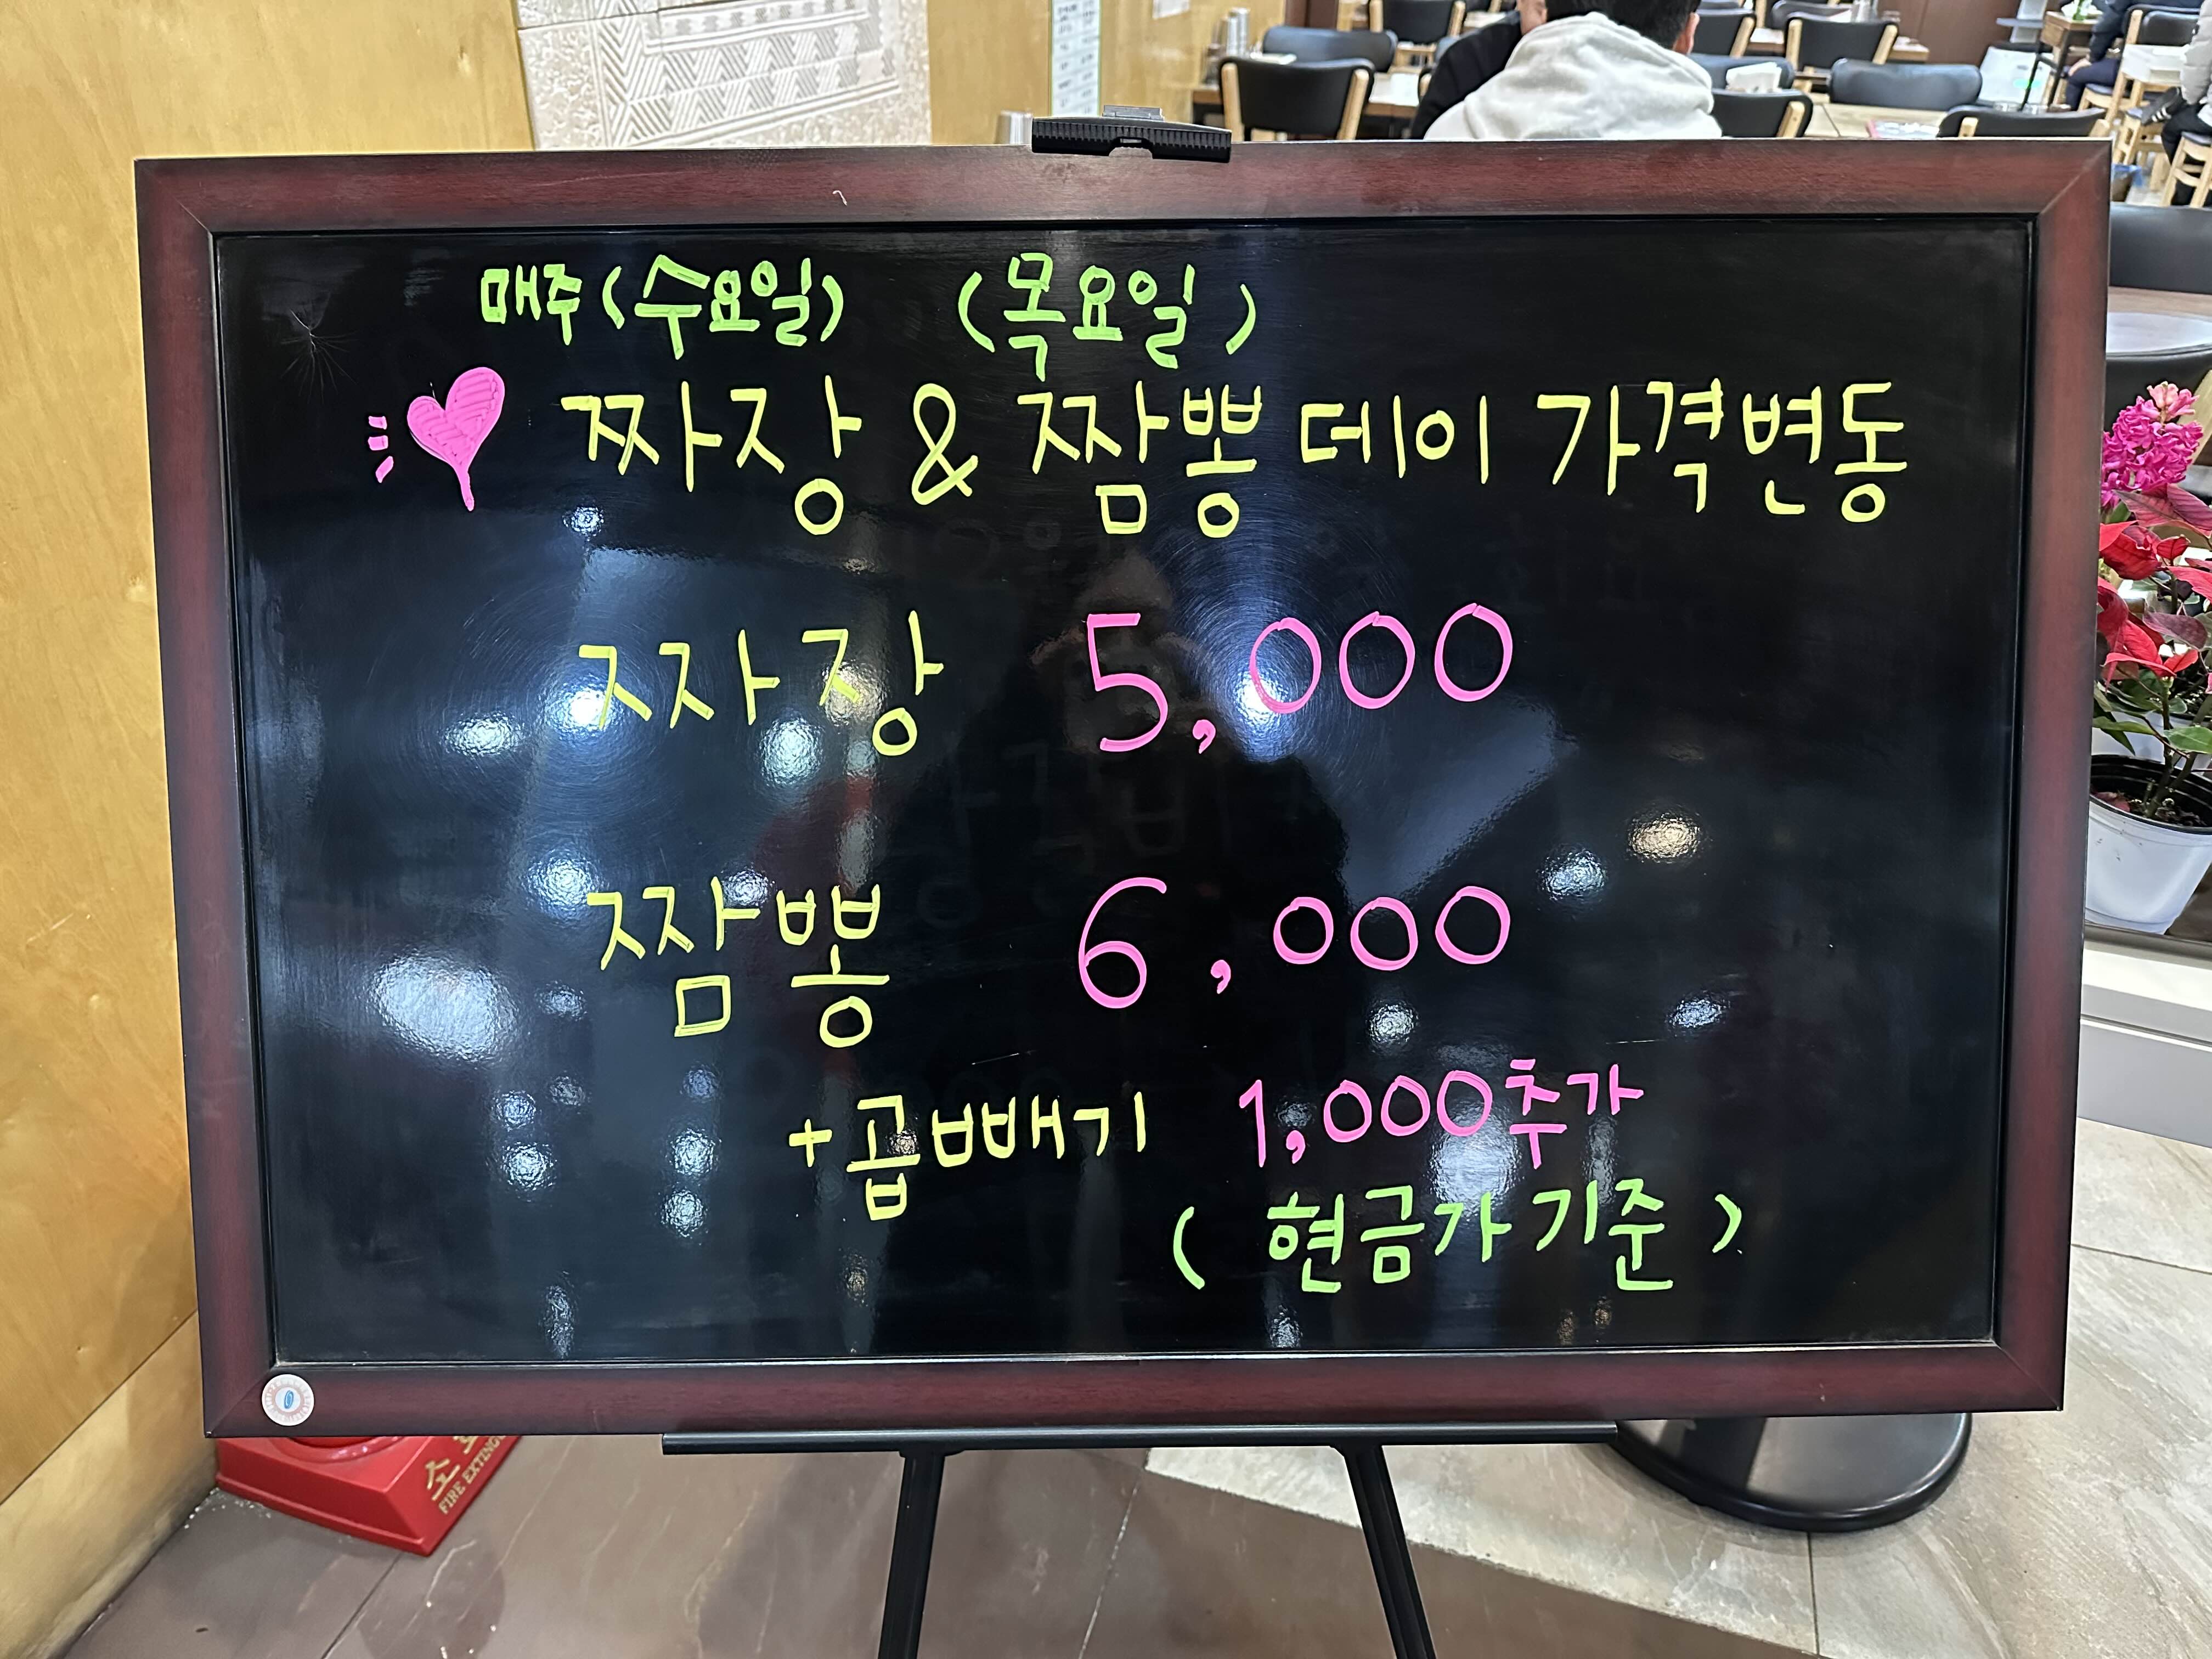 매주(수요일) (목요일)
짜장 & 짬뽕 데이 가격변동
짜장 5,000
짬뽕 6,000
+곱빼기 1,000추가
(현금가기준)
소
FIRE EXTING